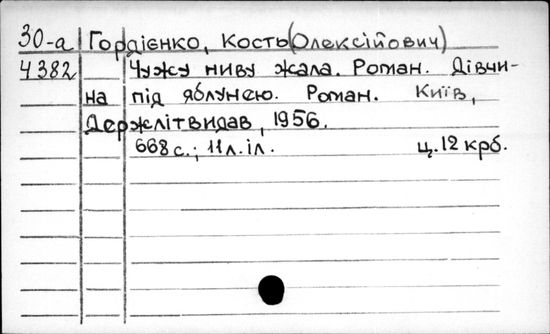 30-а Гордієнко, Кость (Олексійович)
4382 Чужу ниву жала. Роман. Дівчи-
на під яблунею. Роман. Київ,
Держлітвидав, 1956.
668 с.; 11 л. іл. ц. 12 крб.